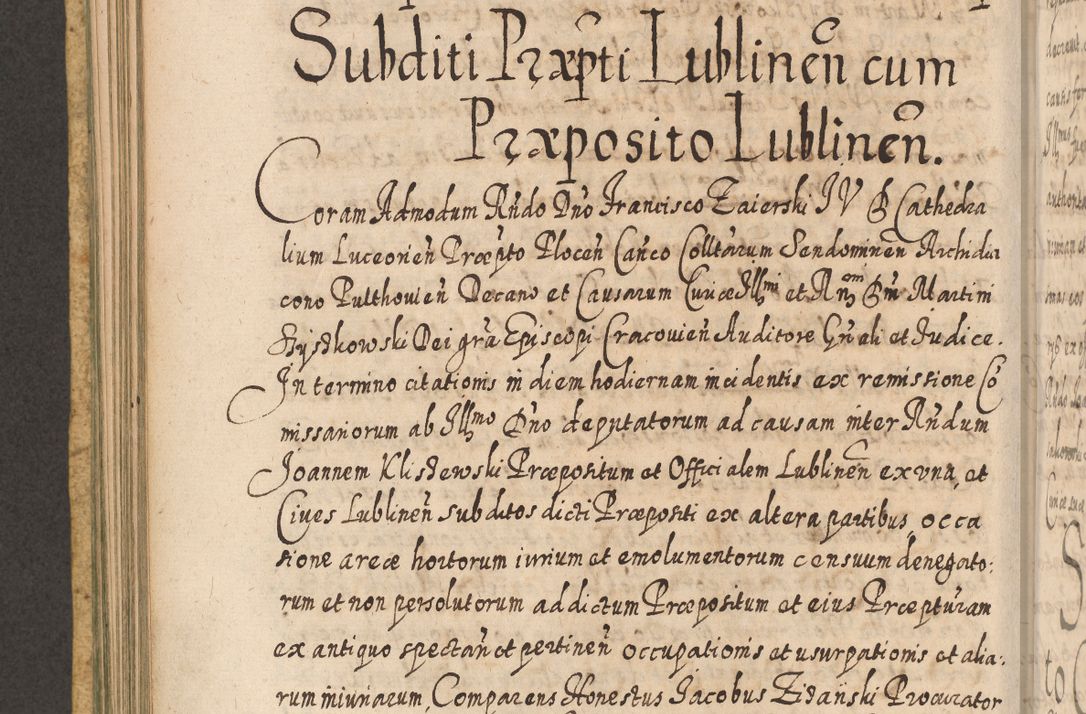 Subditi Præpti Lublinen̄ cum
Præposito Lublinen̄.
Coram Admodum Rn̄do Dn̄o Francisco Zaierski IV D Cathedra
lium Luceorien̄ Præpto Plocen̄ Can̄co Colltarum Sendominen̄ Archidia
cono Pulthouien̄ Decano et Causarum Curiæ Illmi et Rn̄ Dn̄i Martini
Szyszkowski Dei gr̄a Episcopi Cracouien̄ Auditore Gn̄ali et Iudice.
In termino citationis in diem hodiernam incidentis ex remissione Cō
missariorum ab Illmo Dn̄o deputatorum ad causam inter Rn̄dum
Joannem Kliszewski Præpositum et Officialem Lublinen̄ ex vna, et
Ciues Lublinen̄ subditos dicti Præpositi ex altera partibus, occa
sione areæ hortorum iurium et emolumentorum censuum denegato:
rum et non persolutorum ad dictum Præpositum et eius Præpturam
ex antiquo spectan̄ et pertinen̄ occupationis et usurpationis et alia:
rum iniuriarum, Comparens Honestus Jacobus Zidański Procurator